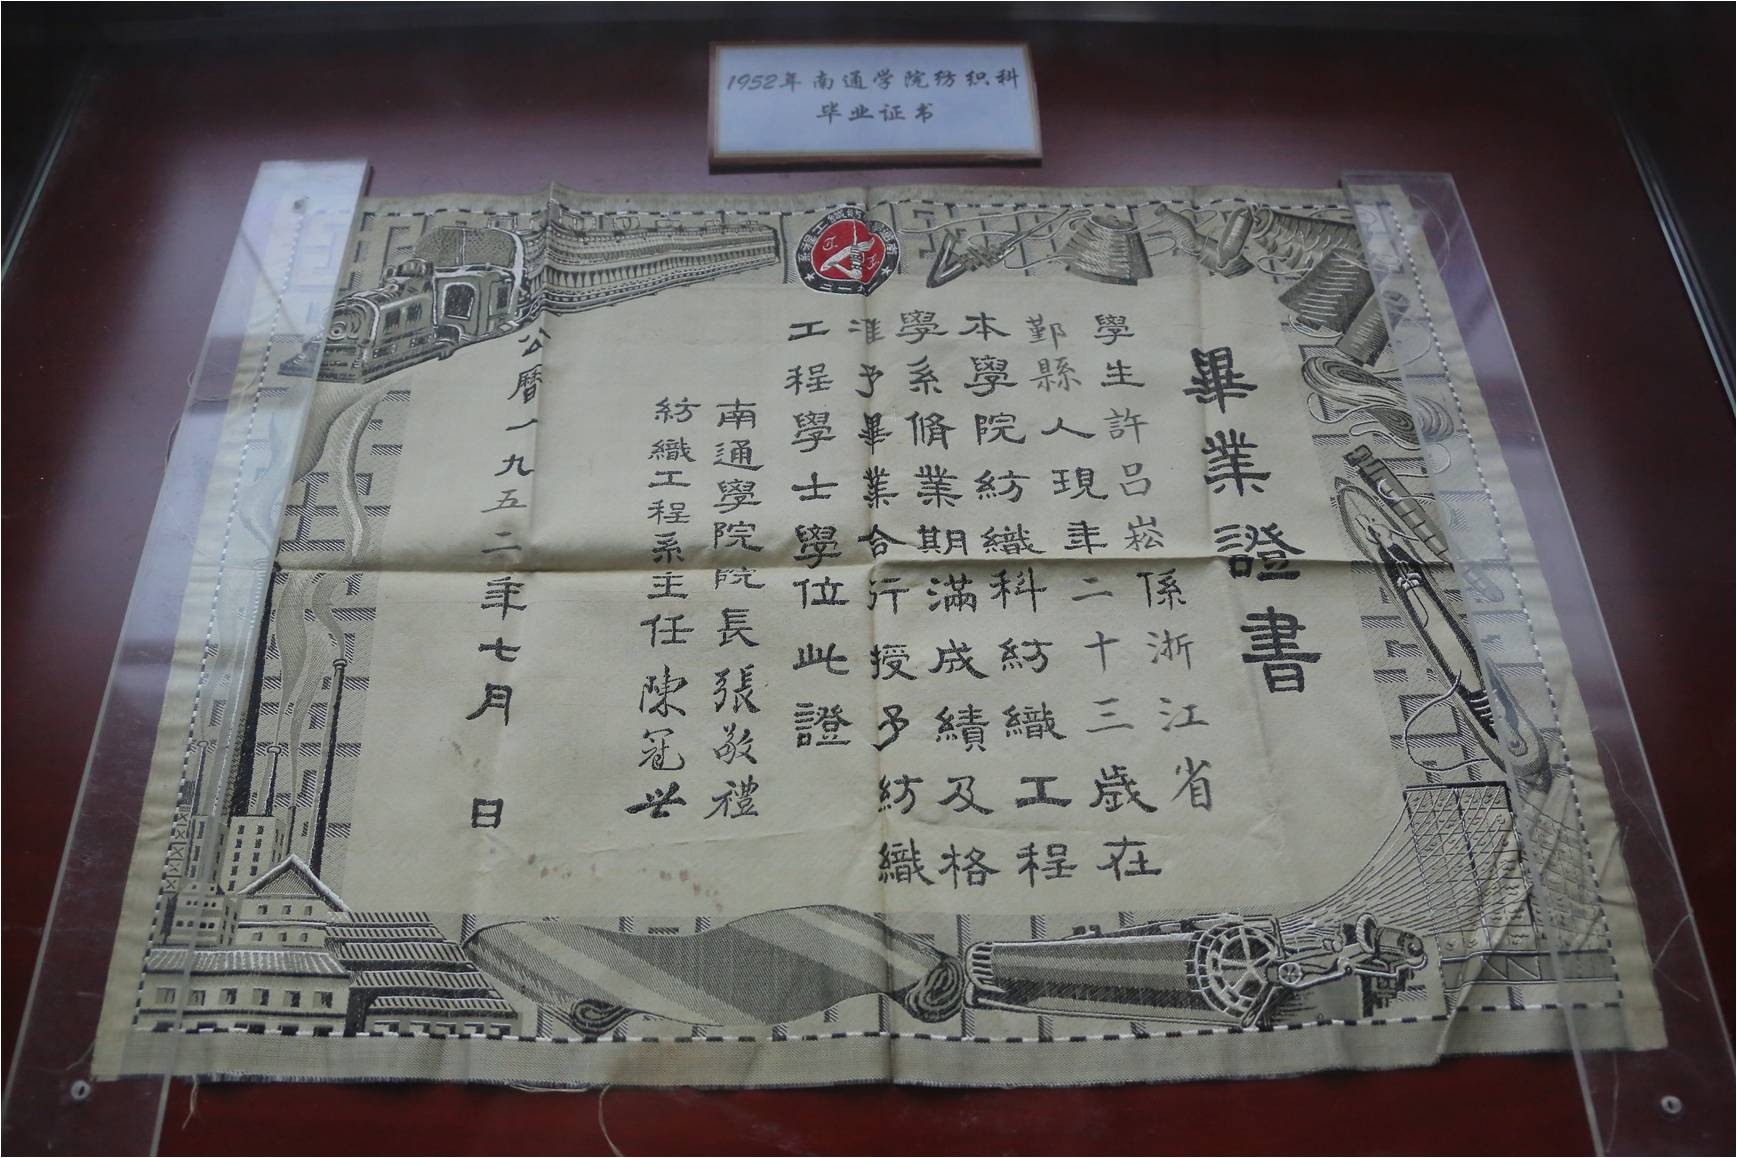 1952年南通学院纺织科
毕业证书
畢業證書
學生許呂崧係浙江省
鄞縣人現年二十三歲在
本學院紡織科紡織工程
學系脩業期滿成績及格
准予畢業合行授予紡織
工程學士學位此證
南通學院院長張敬禮
紡織工程系主任陳冠世
公曆一九五二年七月 日